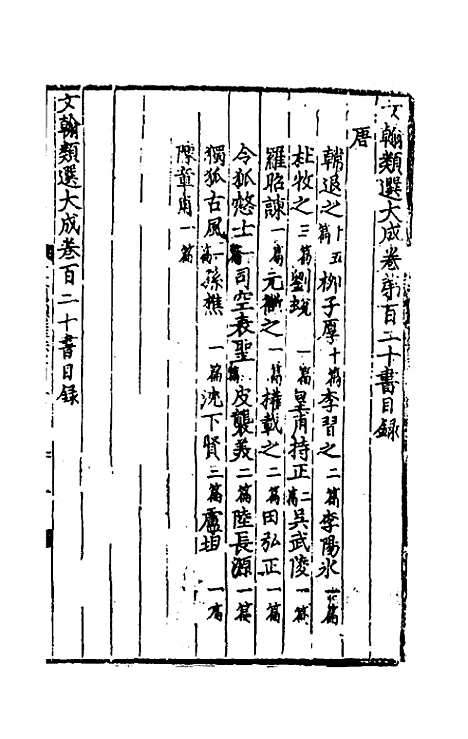 文翰類選大成卷第百二十書目録
唐
韓退之十五篇 柳子厚十篇 李習之二篇 李陽氷一篇
杜牧之三篇 劉蛻一篇 皇甫持正二篇 吳武陵一篇
羅昭諫一篇 元微之一篇 權載之二篇 田弘正一篇
令狐愨士一篇 司空表聖一篇 皮襲美二篇 陸長源一篇
獨孤古風一篇 孫樵一篇 沈下賢三篇 盧坦一篇
陳章甫一篇
文翰類選大成卷百二十書目録